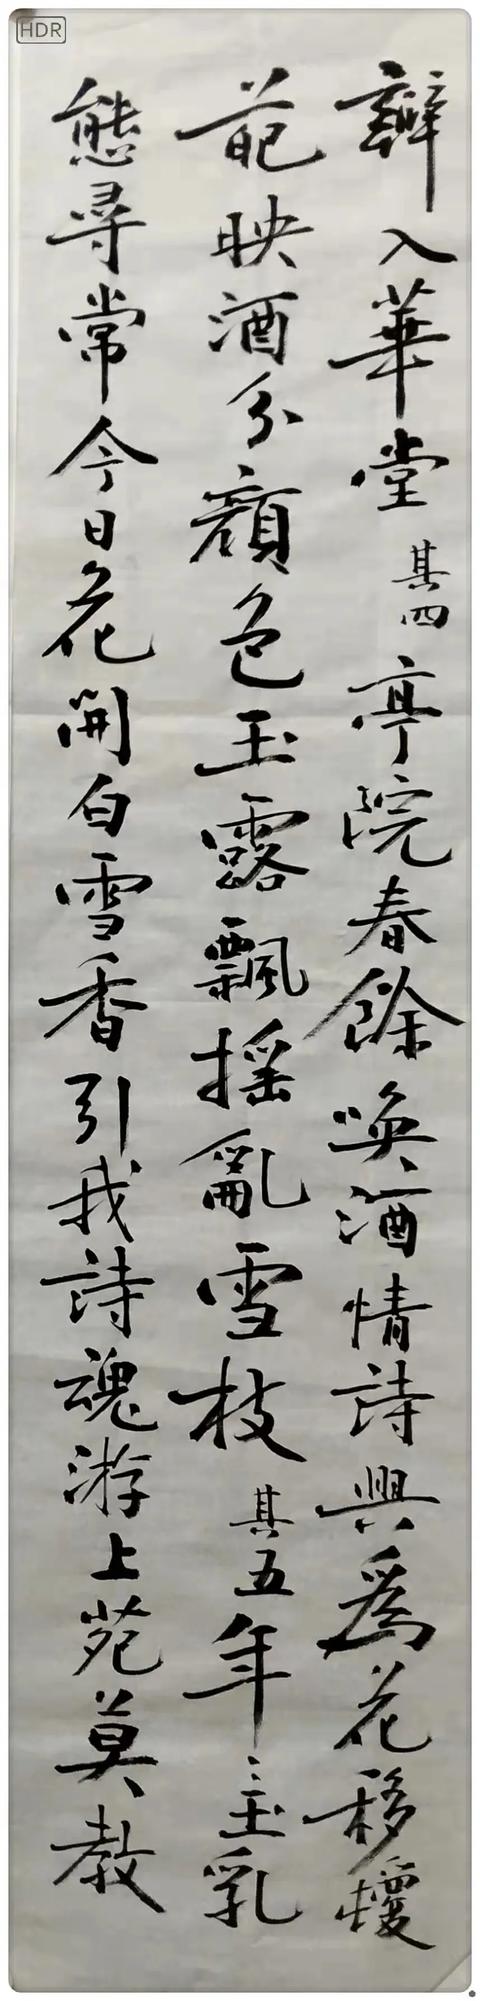 HDR
瓣入華堂 其四 亭院春餘喚酒情詩興為花移瓊
葩映酒分顏色玉露飄搖亂雪枝 其五 年〻玉乳
態尋常今日花開白雪香引我詩魂游上苑莫教